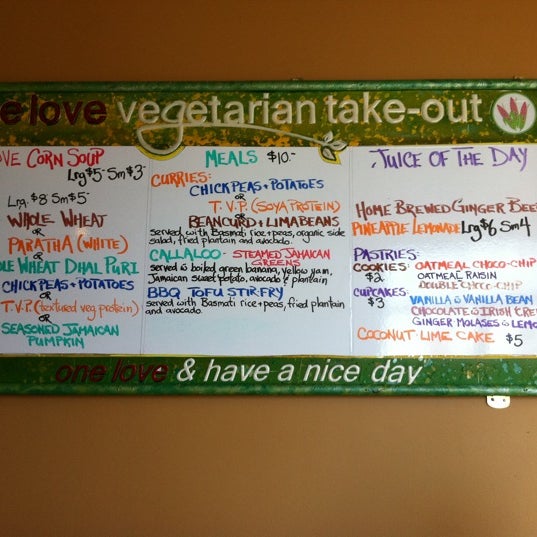 e love vegetarian take-out
VE CORN SOUP
Lrg $5- Sm $3-
Lrg. $8- Sm $5-
WHOLE WHEAT
OR
PARATHA (WHITE)
OR
LE WHEAT DHAL PURI
CHICK PEAS + POTATOES
OR
T.V.P (textured veg protein)
OR
SEASONED JAMAICAN
PUMPKIN
MEALS $10.-
CURRIES:
CHICKPEAS + POTATOES
OR
T. V. P (SOYA PROTEIN)
OR
BEANCURD + LIMABEANS
served with Basmati rice + peas, organic side
salad, fried plantain and avocado.
CALLALOO - STEAMED JAMAICAN
GREENS
served w boiled green banana, yellow yam,
Jamaican sweet potato, avocado & plantain
BBQ TOFU STIR-FRY
served with Basmati rice + peas, fried plantain
and avocado.
JUICE OF THE DAY
HOME BREWED GINGER BEE
PINEAPPLE LEMONADE Lrg $6 Sm 4
PASTRIES:
COOKIES: OATMEAL CHOCO-CHIP
$2 OATMEAL RAISIN
DOUBLE CHOC-CHIP
CUPCAKES: VANILLA & VANILLA BEAN
$3 CHOCOLATE & IRISH CRE
GINGER MOLASES & LEMO
COCONUT-LIME CAKE $5
one love & have a nice day